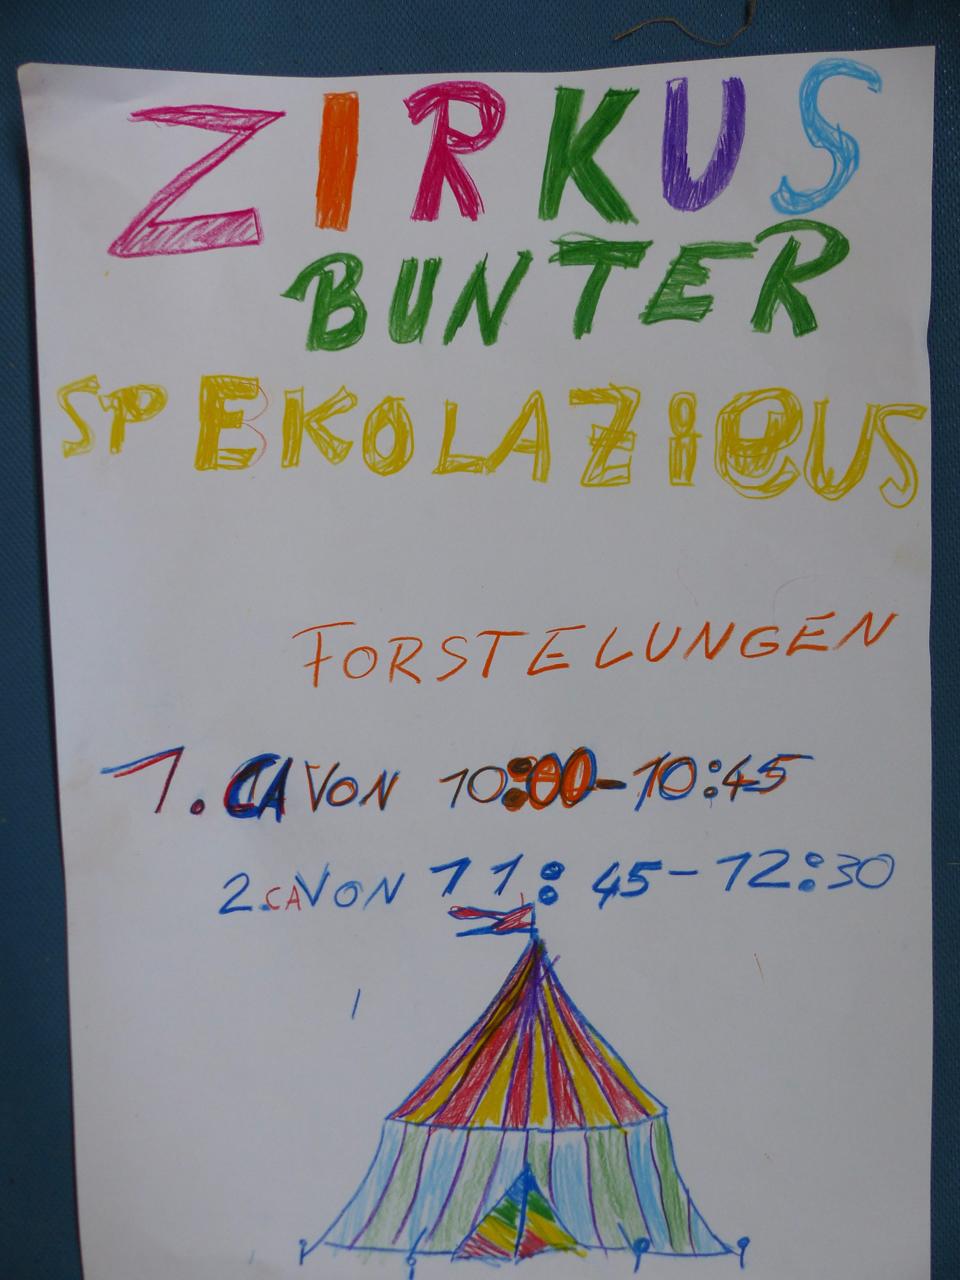 ZIRKUS
BUNTER
SPEKOLAZIEUS
FORSTELUNGEN
1. CA VON 10:00-10:45
2. CA VON 11:45-12:30